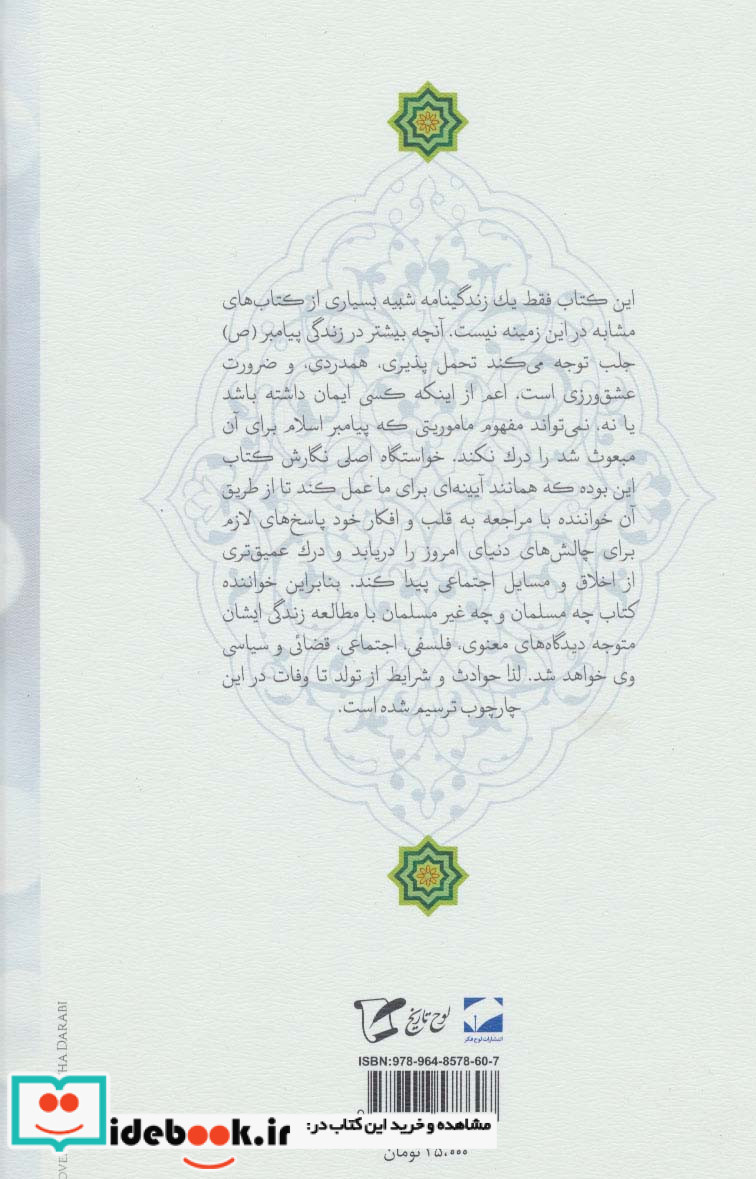 این کتاب فقط یك زندگینامه شبیه بسیاری از کتاب‌های
مشابه در این زمینه نیست. آنچه بیشتر در زندگی پیامبر (ص)
جلب توجه می‌کند تحمل پذیری، همدردی، و ضرورت
عشق‌ورزی است، اعم از اینکه کسی ایمان داشته باشد
یا نه، نمی‌تواند مفهوم ماموریتی که پیامبر اسلام برای آن
مبعوث شد را درك نکند. خواستگاه اصلی نگارش کتاب
این بوده که همانند آیینه‌ای برای ما عمل کند تا از طریق
آن خواننده با مراجعه به قلب و افکار خود پاسخ‌های لازم
برای چالش‌های دنیای امروز را دریابد و درك عمیق‌تری
از اخلاق و مسایل اجتماعی پیدا کند. بنابراین خواننده
کتاب چه مسلمان و چه غیر مسلمان با مطالعه زندگی ایشان
متوجه دیدگاه‌های معنوی، فلسفی، اجتماعی، قضائی و سیاسی
وی خواهد شد. لذا حوادث و شرایط از تولد تا وفات در این
چارچوب ترسیم شده است.
لوح تاریخ
انتشارات لوح فکر
ISBN:978-964-8578-60-7
مشاهده و خرید این کتاب در:
idebook.ir
۱۵،۰۰۰ تومان
DARABI